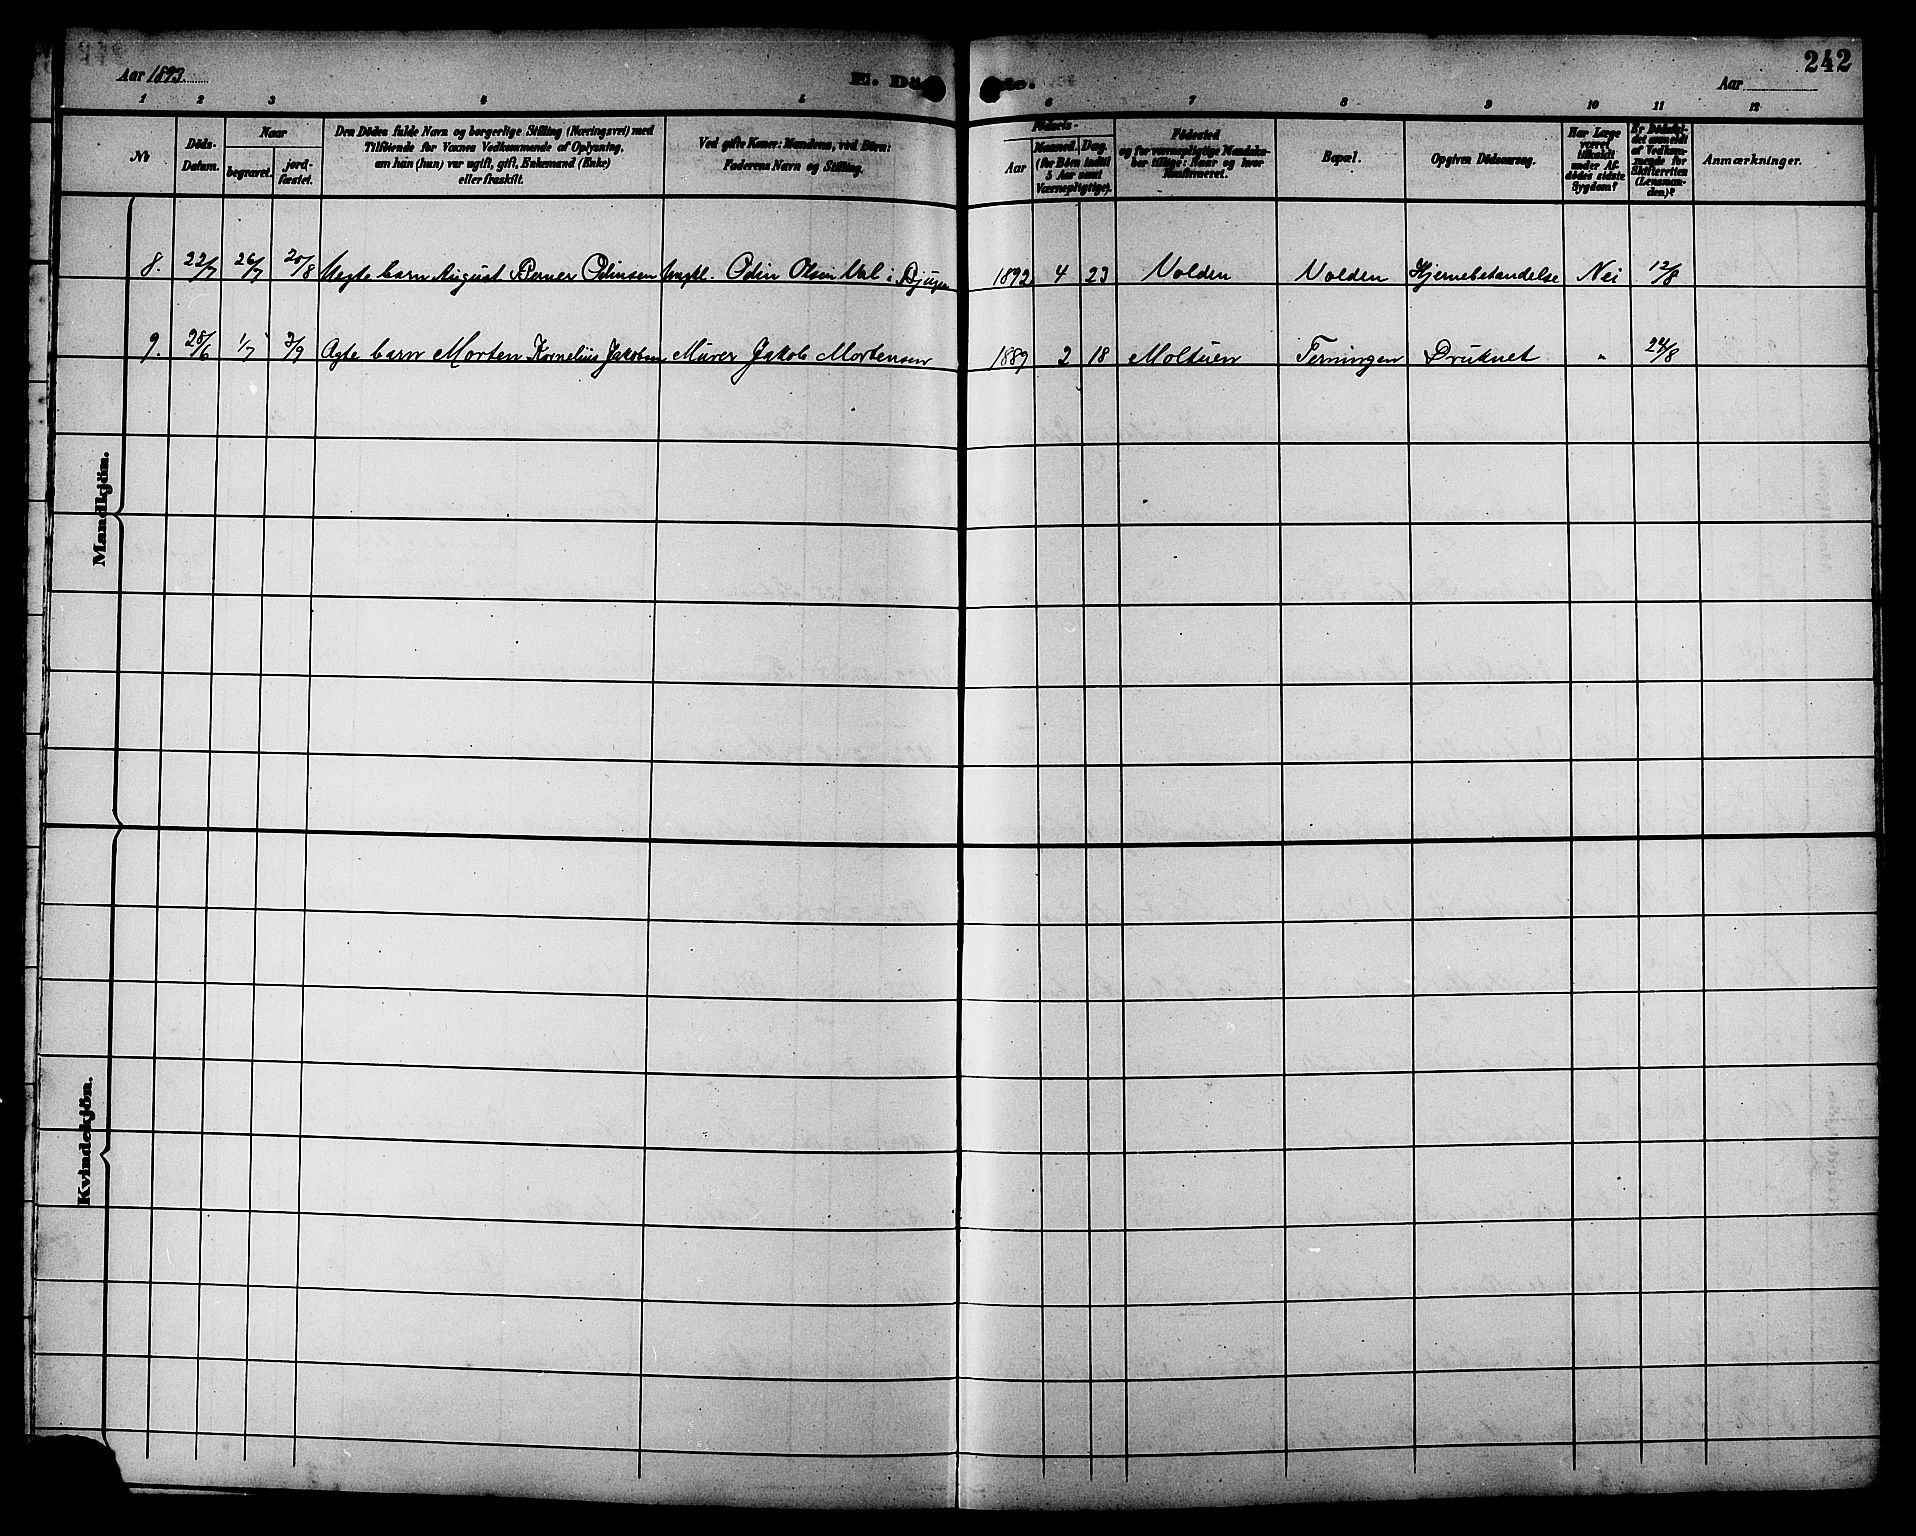 242
Aar 1893
E. Dö de.
Aar
1 2 3 4 5 6 7 8 9 10 11 12
No
Döds-
Datum.
Naar
begravet.
jord-
fæstet.
Den Dödes fulde Navn og borgerlige Stilling (Næringsvei) med
Tilföiende for Voxnes Vedkommende af Oplysning,
om han (hun) var ugift, gift, Enkemand (Enke)
eller fraskilt.
Ved gifte Koner: Mandens, ved Börn:
Faderens Navn og Stilling.
Födsels-
Aar
Maaned.
Dag.
(for Börn indtil
5 Aar samt
Værnepligtige).
Födested
og for værnepligtige Mandska-
ber tillige: Naar og hvor
konfirmeret.
Bopæl.
Opgiven Dödsaarsag.
Har Læge
været
tilkaldt
under Af-
dödes sidste
Sygdom?
Er Dödsfal-
det anmeldt
af Vedkom-
mende for
Skifteretten
(Lensman-
den)?
Anmærkninger.
Mandkjön.
8. 22/7 26/7 20/8 Uegte barn August Berner Odinsen Ungkl. Odin Olsen Val i Bjugn 1892 4 23 Volden Volden Hjernebetændelse Nei 12/8
9. 28/6 1/7 3/9 Ægte barn Morten Kornelius Jakobsen Murer Jakob Mortensen 1889 2 18 Moltuen Terningen Druknet " 24/8
Kvindekjön.